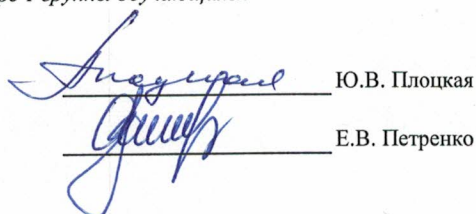 Ю.В. Плоцкая
Е.В. Петренко